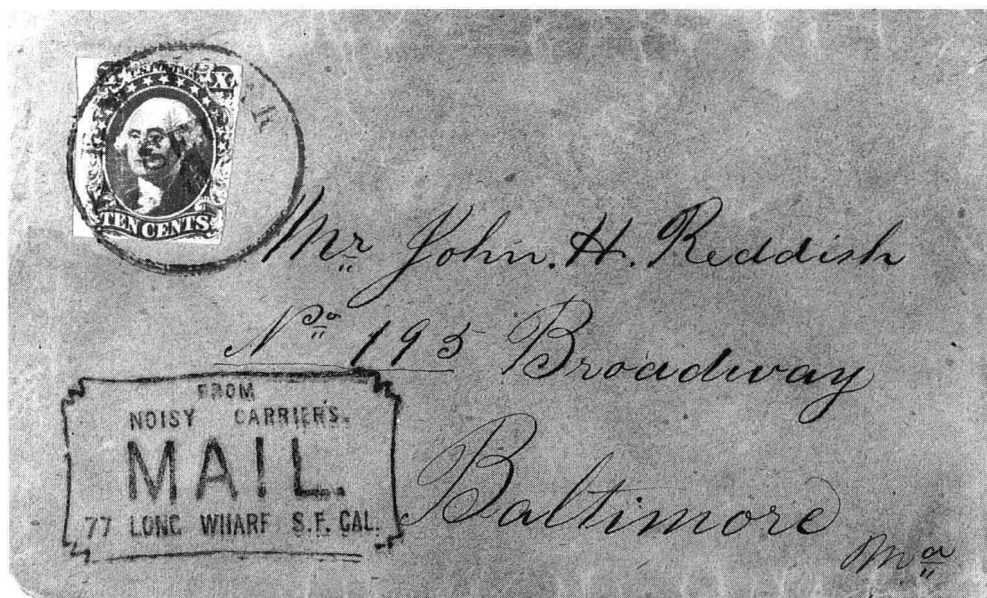 U.S. POSTAGE
X
TEN CENTS
Mr John. H. Reddish
No 195 Broadway
Baltimore
Ma
FROM
NOISY CARRIER'S.
MAIL.
77 LONG WHARF S.F. CAL.